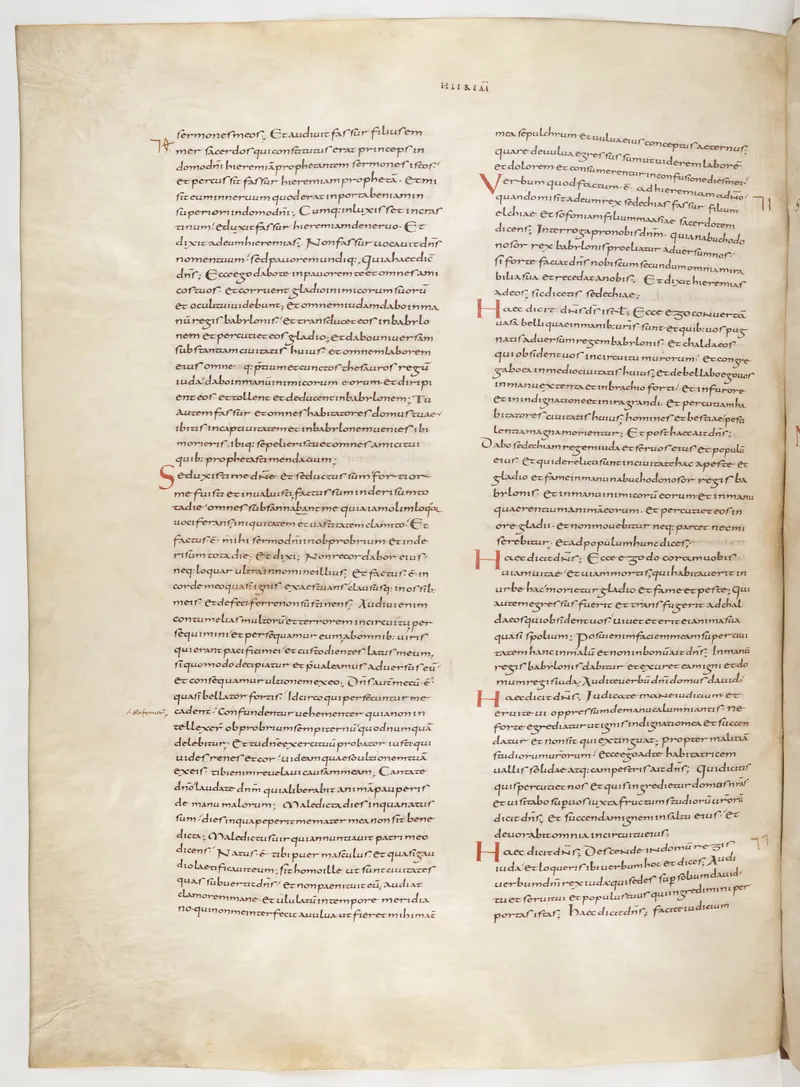 HIEREM̄
sermones meos; Et audiuit fassur filius em
mer sacerdos qui constitutus erat princeps in
domo dn̄i hieremiā prophetantem sermones istos;
et percussit fassur hieremiam prophetā· et mi
sit eum in neruum quod erat in porta beniamin
superiori in domo dn̄i; Cumq: inluxisset in cras
tinum· eduxit fassur hieremiam de neruo· Et
dixit ad eum hieremias; Non fassur uocauit dn̄s
nomen tuum· sed pauorem undiq:· Quia haec dic̄
dn̄s; Ecce ego dabo te in pauorem te et omnes ami
cos tuos· et corruent gladio inimicorum suorū
et oculi tui uidebunt; et omnem iudam dabo in ma
nū regis babylonis· et transducet eos in babylo
nem et percutiet eos gladio; et dabo uniuersam
substantiam ciuitatis huius· et omnem laborem
eius omneq: p̄tium et cunctos thesauros regū
iuda· dabo in manu inimicorum eorum· et diripi
ent eos et tollent et deducent in babylonem; Tu
autem fassur et omnes habitatores domus tuae·
ibitis in captiuitatem et in babylonem uenies· ibi
morieris· ibiq: sepelieris tu et omnes amici tui
quib: prophetasti mendacium;
Seduxisti me dn̄e· et seductus sum· fortior
me fuisti et inualuisti, factus sum in derisum to
ta die· omnes subsannabant me quia iam olim loq̄or
uociferans iniquitatem et uastitatem clamito· Et
factus ē· mihi sermo dn̄i in obprobrium et in de
risum tota die· Et dixi; Non recordabor eius·
neq: loquar ultra in nomine illius; Et factus ē· in
corde meo quasi ignis exaestuans claususq: in ossib:
meis· et defeci ferre non sustinens; Audiui enim
contumelias multorū et terrorem in circuitu per
sequimini et persequamur eum ab omnib: uiris
qui erant pacifici mei· et custodientes latus meum,
si quo modo decipiatur et p̄ualeamus aduersus eū·
et consequamur ultionem ex eo; Dn̄s autē mecū ē·
quasi bellator fortis· Idcirco qui persecuntur me
cadent· Confundentur uehementer quia non in
tellexer̄ obprobrium sempiternū quod numquā
delebitur; Et tu dn̄e exercituū probator iusti qui
uides renes et cor· uideam quaeso ultionem tuā
ex eis· tibi enim reuelaui causam meam; Cantate
dn̄o laudate dn̄m quia liberabit animā pauperis
de manu malorum; Maledicta dies in qua natus
sum· dies in qua peperit me mater mea non sit bene
dicta; Maledictus uir qui annuntiauit patri meo
dicens· Natus ē· tibi puer masculus et quasi gau
dio laetificauit eum; sit homo ille ut sunt ciuitates
quas subuertit dn̄s· et non paenituit eū, Audiat
clamorem mane· et ululatū in tempore meridia
no· qui non me interfecit a uulua ut fieret mihi mat̄
mea sepulchrum et uulua eius conceptus aeternus;
quare de uulua egressus sum ut uiderem laborē
et dolorem et consumerentur in confusione dies mei·
Verbum quod factum ē· ad hieremiam a dn̄o·
quando misit ad eum rex sedechias fassur filium
elchiae· et sofoniam filium maasiae sacerdotem
dicens; Interroga pro nobis dn̄m· quia nabuchodo
nosor rex babylonis proeliatur aduersum nos·
si forte faciat dn̄s nobiscum secundum omnia mira
bilia sua et recedat a nobis; Et dixit hieremias
ad eos; sic dicetis sedechiae;
Haec dicit dn̄s ds̄ isr̄l; Ecce ego conuertā
uasa belli quae in manib: ur̄is sunt et quib: uos pug
natis aduersum regem babylonis· et chaldaeos
qui obsident uos in circuitu murorum· et congre
gabo ea in medio ciuitatis huius· et debellabo ego uos
in manu extenta et in brachio forti· et in furore
et in indignatione et in ira grandi· et percutiam ha
bitatores ciuitatis huius· homines et bestiae pesti
lentia magna morientur; Et post haec ait dn̄s;
Dabo sedechiam regem iuda et seruos eius et populū
eius· et qui derelicti sunt in ciuitate hac a peste· et
gladio et fame in manu nabuchodonosor regis ba
bylonis· et in manu inimicorū eorum et in manu
quaerentium animā eorum· et percutiet eos in
ore gladii· et non mouebitur neq: parcet nec mi
serebitur; et ad populum hunc dices;
Haec dicit dn̄s; Ecce ego do coram uobis
uiam uitae· et uiam mortis; qui habitauerit in
urbe hac· morietur gladio et fame et peste; Qui
autem egressus fuerit et transfugerit ad chal
daeos qui obsident uos· uiuet et erit ei anima sua
quasi spolium; Posui enim faciem meam super ciui
tatem hanc in malū et non in bonū ait dn̄s; In manu
regis babylonis dabitur· et exuret eam igni et do
mum regis iuda; Audite uerbū dn̄i domus dauid·
Haec dicit dn̄s; Iudicate mane iudicium et
eruite ui oppressum de manu calumniantis· ne
forte egrediatur ut ignis indignatio mea et succen
datur· et non sit qui extinguat; propter malitiā
studiorum urorum· Ecce ego ad te habitatricem
uallis solidae atq: campestris ait dn̄s; Qui dicitis
quis percutiet nos· et quis ingredietur domos nr̄as·
et uisitabo sup uos iuxta fructum studiorū ur̄orū
dicit dn̄s; et succendam ignem in saltu eius· et
deuorabit omnia in circuitu eius;
Haec dicit dn̄s; Descende in domū regis
iuda· et loqueris ibi uerbum hoc et dices; Audi
uerbum dn̄i rex iuda qui sedes sup solium dauid·
tu et serui tui et populus tuus qui ingredimini per
portas istas; Haec dicit dn̄s; facite iudicium